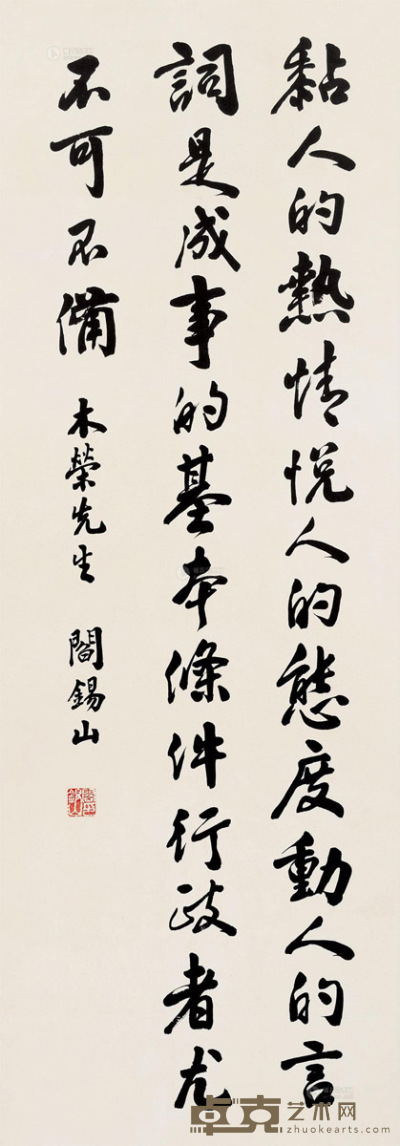 黏人的熱情悅人的態度動人的言
詞是成事的基本條件行政者尤
不可不備
木榮先生 閻錫山
卓克艺术网
zhuokearts.com